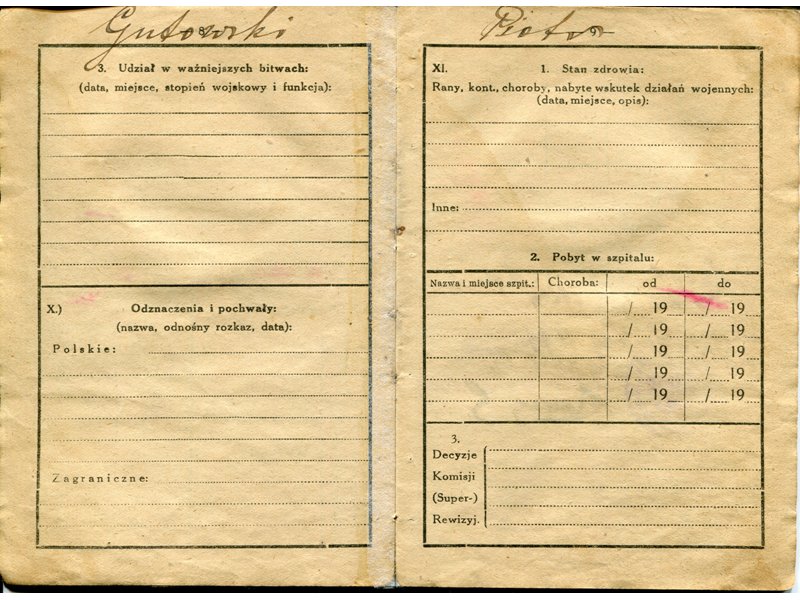 Gutowski
3. Udział w ważniejszych bitwach:
(data, miejsce, stopień wojskowy i funkcja):
X.) Odznaczenia i pochwały:
(nazwa, odnośny rozkaz, data):
Polskie:
Zagraniczne:
Piotr
XI. 1. Stan zdrowia:
Rany, kont., choroby, nabyte wskutek działań wojennych:
(data, miejsce, opis):
Inne:
2. Pobyt w szpitalu:
Nazwa i miejsce szpit.: Choroba: od do
/ 19 / 19
/ 19 / 19
/ 19 / 19
/ 19 / 19
/ 19 / 19
3.
Decyzje
Komisji
(Super-)
Rewizyj.